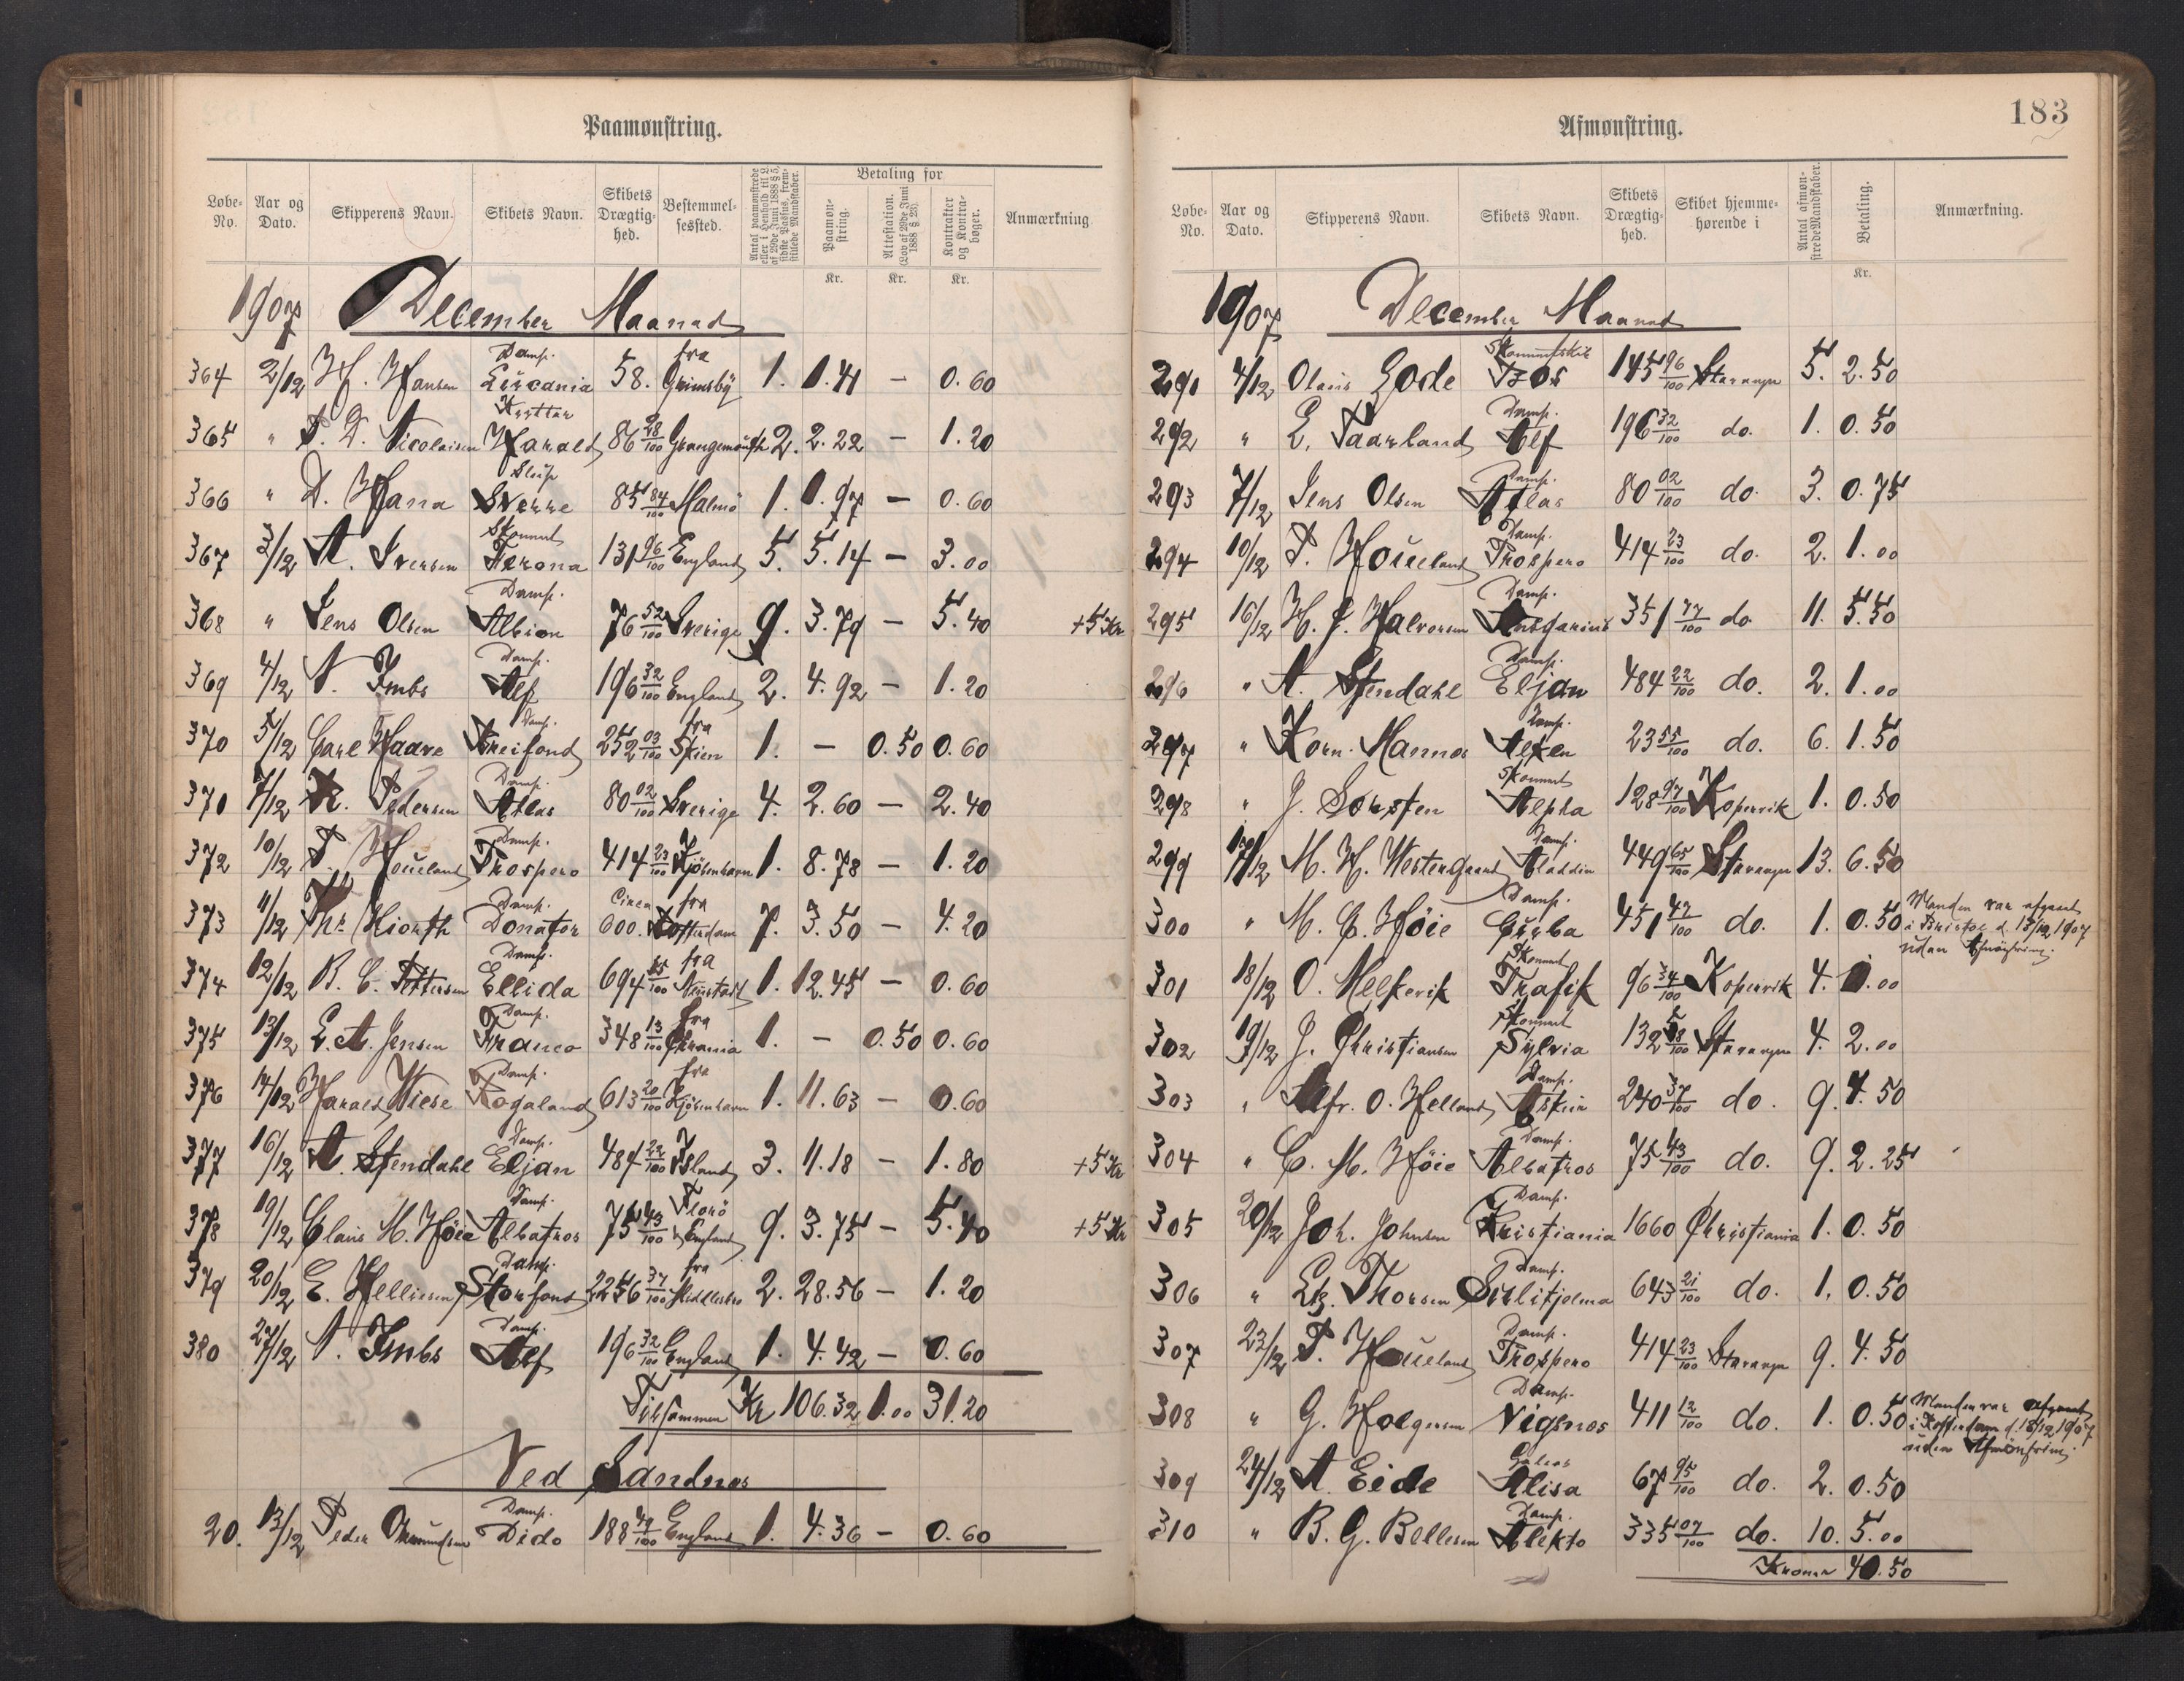 Paamønstring.
Løbe-No. Aar og Dato. Skipperens Navn. Skibets Navn. Skibets Drægtighed. Bestemmelsessted. Antal paamønstrede eller i Henhold til L. af 29de Juni 1888 § 5, sidste Passus, fremstillede Mandskaber. Betaling for Paamønstring. Attestation. (Lov af 29de Juni 1888 § 23). Kontrakter og Kontrabøger. Anmærkning
Kr. Kr. Kr.
1907 December Maaned
364 2/12 H. Hansen Damp. Lucania 58. fra Grimsby 1. 1.41 - 0.60
365 " P. D. Nicolaisen Kutter Harald 86 28/100 Grangemouth 2. 2.22 - 1.20
366 " D. Hana Slup Sverre 85 84/100 Malmö 1. 0.97 - 0.60
367 3/12 A. Iversen Skonnert Verona 131 96/100 England 5. 5.14 - 3.00
368 " Jens Olsen Damp. Albion 76 52/100 Sverige 9. 3.79 - 5.40 +5 Kr
369 4/12 N. Imbs Damp. Alf 196 32/100 England 2. 4.92 - 1.20
370 5/12 Carl Haave Damp. Breifond 252 03/100 fra Skien 1. - 0.50 0.60
370 7/12 Pedersen Damp. Atlas 80 02/100 Sverige 4. 2.60 - 2.40
372 10/12 P. Houeland Damp. Prospero 414 23/100 Kjöbenhavn 1. 8.78 - 1.20
373 11/12 Hiorth Damp. Donator Circa 600. fra Rotterdam 7. 3.50 - 4.20
374 12/12 B. C. Pettersen Damp. Ellida 694 85/100 fra 1. 12.45 - 0.60
375 13/12 E. A. Jensen Damp. Franco 348 13/100 fra Chrania 1. - 0.50 0.60
376 14/12 Harald Wiese Damp. Rogaland 613 20/100 fra Kjöbenhavn 1. 11.63 - 0.60
377 16/12 A. Stendahl Damp. Eljan 484 22/100 Island 3. 11.18 - 1.80 +5 Kr
378 19/12 Claus M. Höie Damp. Albatros 75 43/100 Florö England 9. 3.75 - 5.40 +5 Kr
379 20/12 E. Helliesen Damp. Storfond 2256 37/100 fra Middlesbro 2. 28.56 - 1.20
380 27/12 N. Imbs Damp. Alf 196 32/100 England 1. 4.42 - 0.60
Tilsammen Kr 106.32 1.00 31.20
Ved Sandnes
20. 13/12 Peder Omundsen Damp. Dido 188 49/100 England 1. 4.36 - 0.60
183
Afmønstring.
Løbe-No. Aar og Dato. Skipperens Navn. Skibets Navn. Skibets Drægtighed. Skibet hjemmehørende i Antal afmønstrede Mandskaber. Betaling. Anmærkning.
Kr.
1907 December Maaned
291 4/12 Olaus Gode 145 96/100 Stavanger 5. 2.50
292 " E. Paarland Damp. Alf 196 32/100 do. 1. 0.50
293 7/12 Jens Olsen Damp. Atlas 80 02/100 do. 3. 0.75
294 10/12 P. Houeland Damp. Prospero 414 23/100 do. 2. 1.00
295 16/12 H. J. Halvorsen Damp. Ansgarius 351 77/100 do 11. 5.50
296 " A. Stendahl Damp. Eljan 484 22/100 do. 2. 1.00
297 " Korn. Mannes Damp. Alken 23 55/100 do. 6. 1.50
298 " J. Skonnert Alpha 128 97/100 Kopervik 1. 0.50
299 17/12 M. H. Westergaard Damp. Aladdin 449 65/100 Stavanger 13. 6.50
300 " M. C. Höie Damp. Curba 451 47/100 do. 1. 0.50 Manden var afgaaet
i Bristol d. 13/12 1907
uden Afmönstring.
301 18/12 O. Melkevik Skonnert Trafik 96 34/100 Kopervik 4. 1.00
302 19/12 J. Christiansen Skonnert Sylvia 132 58/100 Stavanger 4. 2.00
303 " Alfr. O. Helland Damp. 240 37/100 do. 9. 4.50
304 " C. M. Höie Damp. Albatros 75 43/100 do. 9. 2.25
305 20/12 Joh. Johnsen Damp. Kristiania 1660 Christiania 1. 0.50
306 " Thorsen Damp. Sulitjelma 643 21/100 do. 1. 0.50
307 23/12 P. Houeland Damp. Prospero 414 23/100 Stavanger 9. 4.50
308 " G. Holgersen Damp. Vigsnes 411 12/100 do. 1. 0.50 Manden var afgaaet
i Rotterdam d. 13/12 1907
uden Afmönstring.
309 24/12 A. Eide Galeas Alisa 67 95/100 do. 2. 0.50
310 " B. G. Bellesen Damp. Alekto 335 07/100 do. 10. 5.00
Kroner 40.50